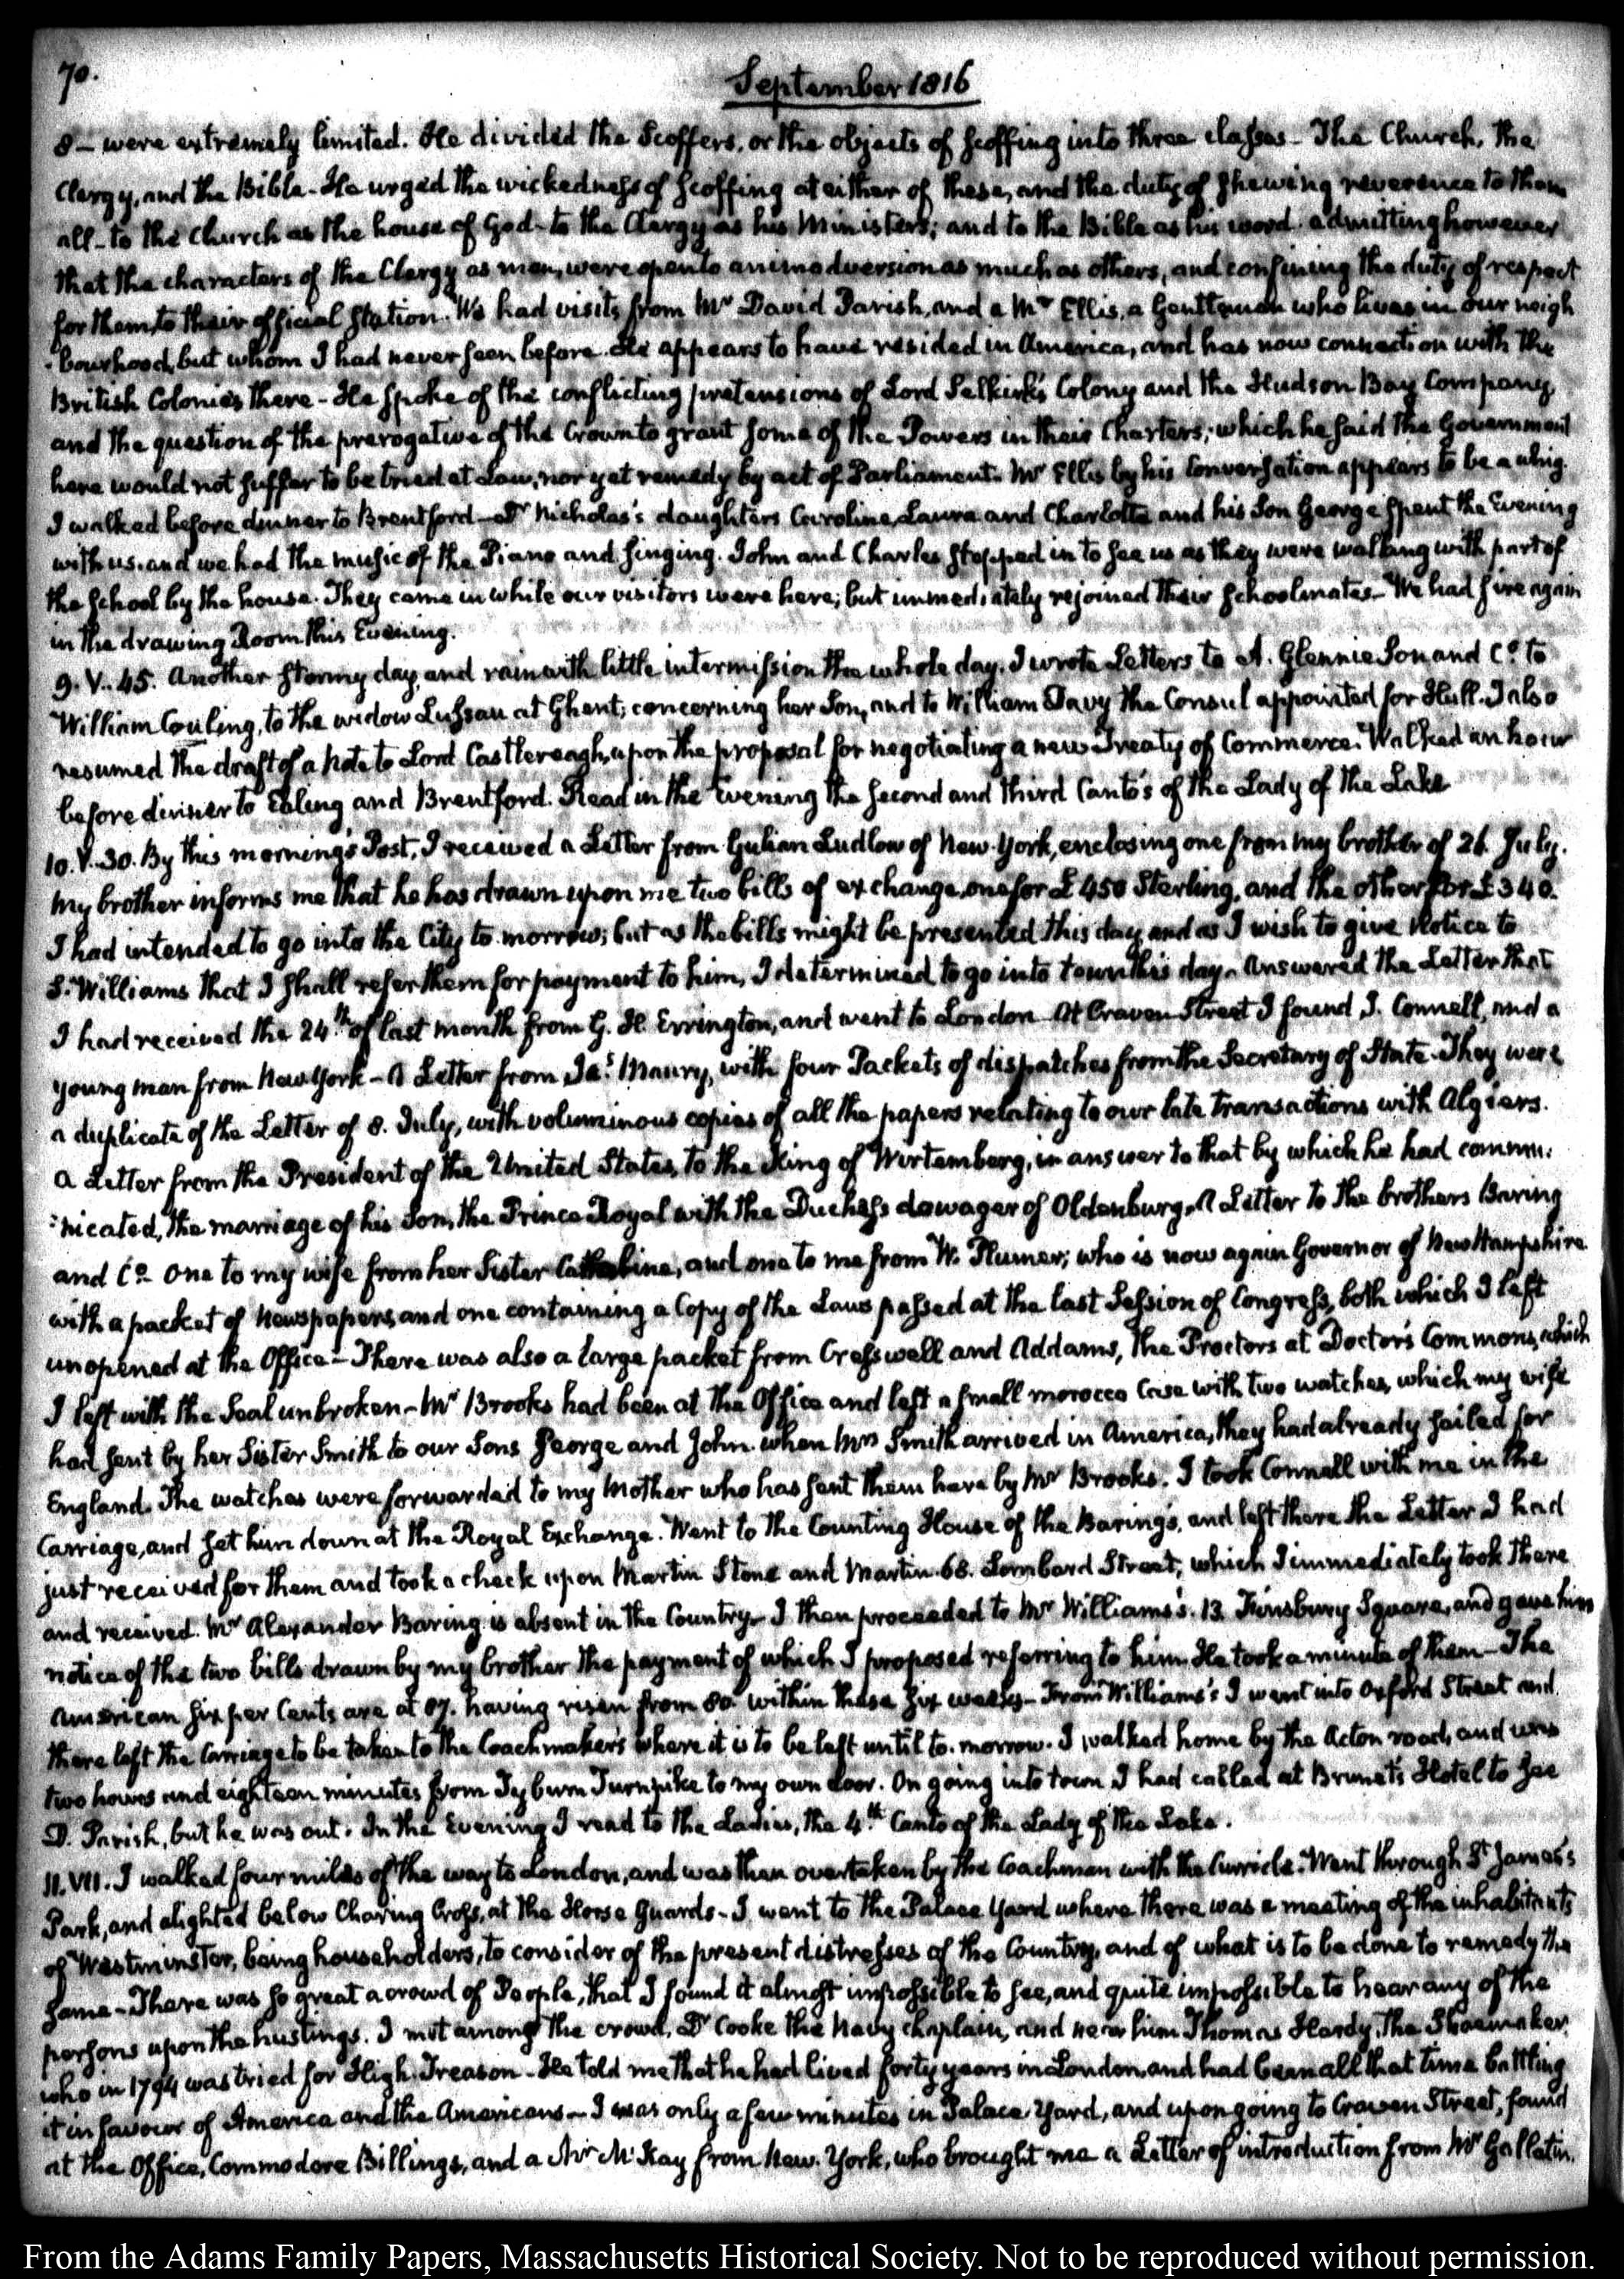 70.
September 1816
8 — were extremely limited. He divided the Scoffers, or the objects of scoffing into three classes — The Church, the
Clergy, and the Bible — He urged the wickedness of scoffing at either of these, and the duty of shewing reverence to them
all — to the Church as the house of God — to the Clergy as his Ministers; and to the Bible as his word. admitting however
that the characters of the Clergy as men, were open to animadversion as much as others, and confining the duty of respect
for them, to their official station. We had visits from Mr David Parish, and a Mr Ellis, a Gentleman who lives in our neigh
-bourhood, but whom I had never seen before. He appears to have resided in America, and has now connection with the
British Colonies there — He spoke of the conflicting pretensions of Lord Selkirk's Colony and the Hudson Bay Company,
and the question of the prerogative of the Crown to grant some of the Powers in their Charters; which he said the Government
here would not suffer to be tried at Law, nor yet remedy by act of Parliament. Mr Ellis by his conversation appears to be a whig.
I walked before dinner to Brentford — Dr Nicholas's daughters Caroline, Laura and Charlotte and his Son George spent the Evening
with us. and we had the music of the Piano and singing. John and Charles stopped in to see us as they were walking with part of
the school by the house. They came in while our visitors were here; but immediately rejoined their schoolmates — We had fire again
in the drawing Room this Evening.
9. V. 45. Another stormy day, and rain with little intermission the whole day. I wrote Letters to A. Glennie Son and Co. to
William Couling, to the widow Lussan at Ghent, concerning her Son, and to William Davy the Consul appointed for Hull. I also
resumed the draft of a Note to Lord Castlereagh, upon the proposal for negotiating a new Treaty of Commerce. Walked an hour
before dinner to Ealing and Brentford. Read in the Evening the second and third Canto's of the Lady of the Lake
10. V. 30. By this morning's Post, I received a Letter from Gulian Ludlow of New-York, enclosing one from my brother of 26. July.
My brother informs me that he has drawn upon me two bills of exchange, one for £450 Sterling, and the other for £340.
I had intended to go into the City to-morrow; but as the bills might be presented this day, and as I wish to give Notice to
S. Williams that I shall refer them for payment to him, I determined to go into town this day. Answered the Letter that
I had received the 24th of last month from G. H. Errington, and went to London. At Craven Street I found J. Connell, and a
young man from New York — A Letter from Jas. Maury, with four Packets of dispatches from the Secretary of State. They were
a duplicate of the Letter of 8. July, with voluminous copies of all the papers relating to our late transactions with Algiers.
A Letter from the President of the United States, to the King of Wirtemberg, in answer to that by which he had commu-
-nicated, the marriage of his Son, the Prince Royal with the Duchess dowager of Oldenburg. A Letter to the brothers Baring
and Co. One to my wife from her Sister Catherine, and one to me from W. Plumer; who is now again Governor of New Hampshire
with a packet of Newspapers, and one containing a Copy of the Laws passed at the last Session of Congress, both which I left
unopened at the Office — There was also a large packet from Cresswell and Addams, the Proctors at Doctor's Commons, which
I left with the Seal unbroken — Mr Brooks had been at the Office and left a small morocco Case with two watches, which my wife
had sent by her Sister Smith to our Sons George and John. when Mrs Smith arrived in America, they had already sailed for
England. The watches were forwarded to my Mother who has sent them here by Mr Brooks. I took Connell with me in the
Carriage, and set him down at the Royal Exchange. Went to the Counting House of the Baring's, and left there the Letter I had
just received for them and took a check upon Martin Stone and Martin. 68. Lombard Street, which I immediately took there
and received. Mr Alexander Baring is absent in the Country. I then proceeded to Mr Williams's. 13. Finsbury Square, and gave him
notice of the two bills drawn by my brother the payment of which I proposed referring to him. He took a minute of them — The
American six per Cents are at 87. having risen from 80. within these six weeks — From Williams's I went into Oxford Street and
there left the Carriage to be taken to the Coachmaker's where it is to be left until to-morrow. I walked home by the Acton road, and was
two hours and eighteen minutes from Tyburn Turnpike to my own door. On going into town I had called at Brunet's Hotel to see
D. Parish, but he was out. In the Evening I read to the Ladies, the 4th Canto of the Lady of the Lake.
11. VII. I walked four miles of the way to London, and was then overtaken by the Coachman with the Curricle. Went through St James's
Park, and alighted below Charing Cross, at the Horse Guards — I went to the Palace Yard where there was a meeting of the inhabitants
of Westminster, being householders, to consider of the present distresses of the Country, and of what is to be done to remedy the
same — There was so great a crowd of People, that I found it almost impossible to see, and quite impossible to hear any of the
persons upon the hustings. I met among the crowd, Dr Cooke the Navy Chaplain, and near him Thomas Hardy, the Shoemaker,
who in 1794 was tried for High Treason — He told me that he had lived forty years in London, and had been all that time battling
it in favour of America and the Americans — I was only a few minutes in Palace Yard, and upon going to Craven Street, found
at the Office, Commodore Billings, and a Mr McKay from New-York, who brought me a Letter of introduction from Mr Gallatin.
From the Adams Family Papers, Massachusetts Historical Society. Not to be reproduced without permission.